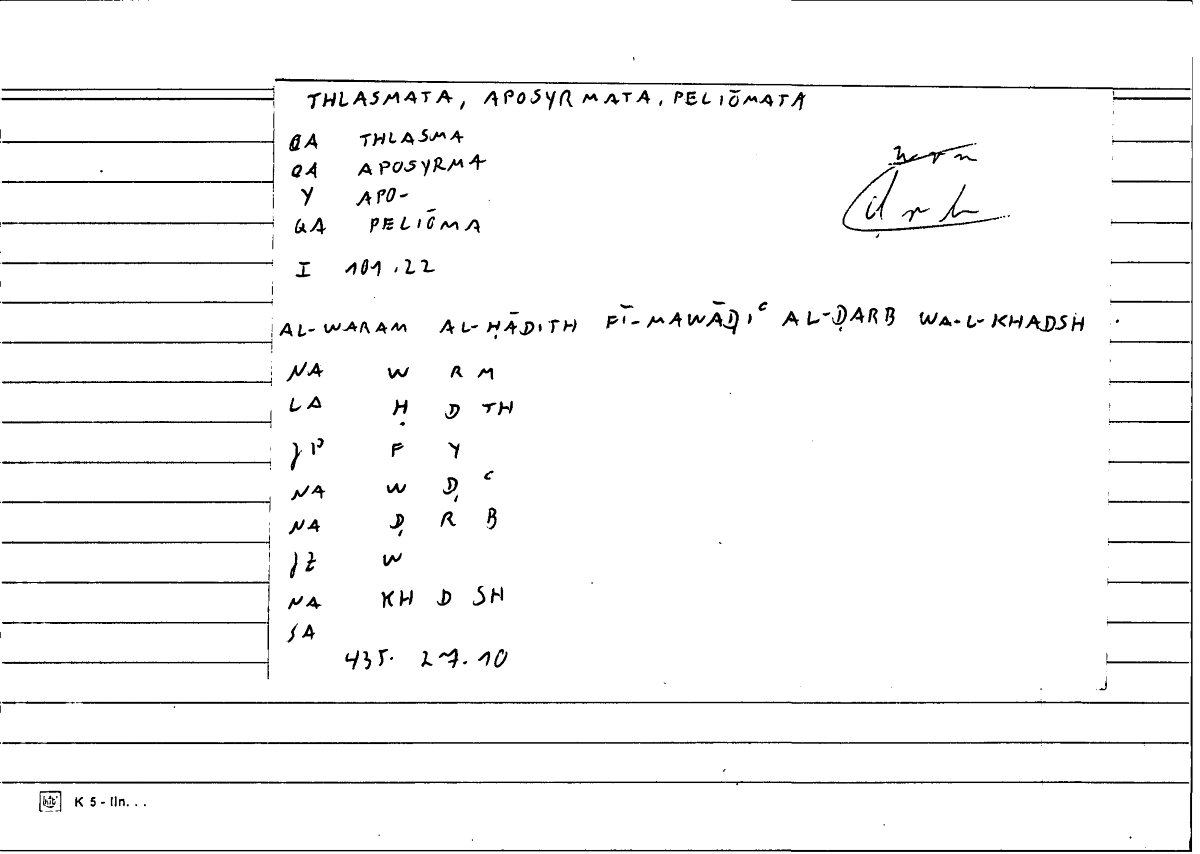 THLASMATA, APOSYRMATA, PELIŌMATA
QA THLASMA
QA APOSYRMA
Y APO-
QA PELIŌMA
I 101.22
AL-WARAM AL-ḤĀDITH FĪ-MAWĀḌIᶜ AL-ḌARB WA-L-KHADSH.
NA W R M
LA Ḥ D TH
JP F Y
NA W Ḍ ᶜ
NA Ḍ R B
JZ W
NA KH D SH
SA
435. 27.10
hit K 5 - lin...